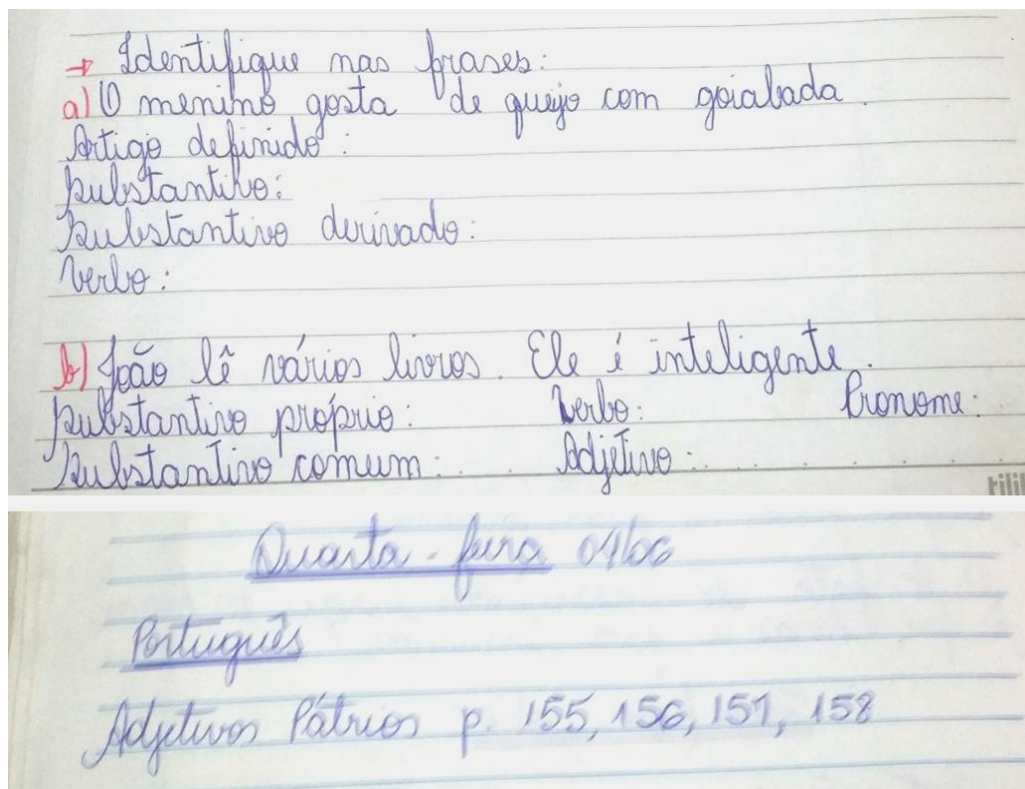 → Identifique nas frases:
a) O menino gosta de queijo com goiabada.
Artigo definido:
substantivo:
Substantivo derivado:
Verbo:
b) João lê vários livros. Ele é inteligente.
substantivo próprio: Verbo: Pronome:
Substantivo comum: Adjetivo:
Quarta-feira 04/06
Português
Adjetivos Pátrios p. 155, 156, 157, 158